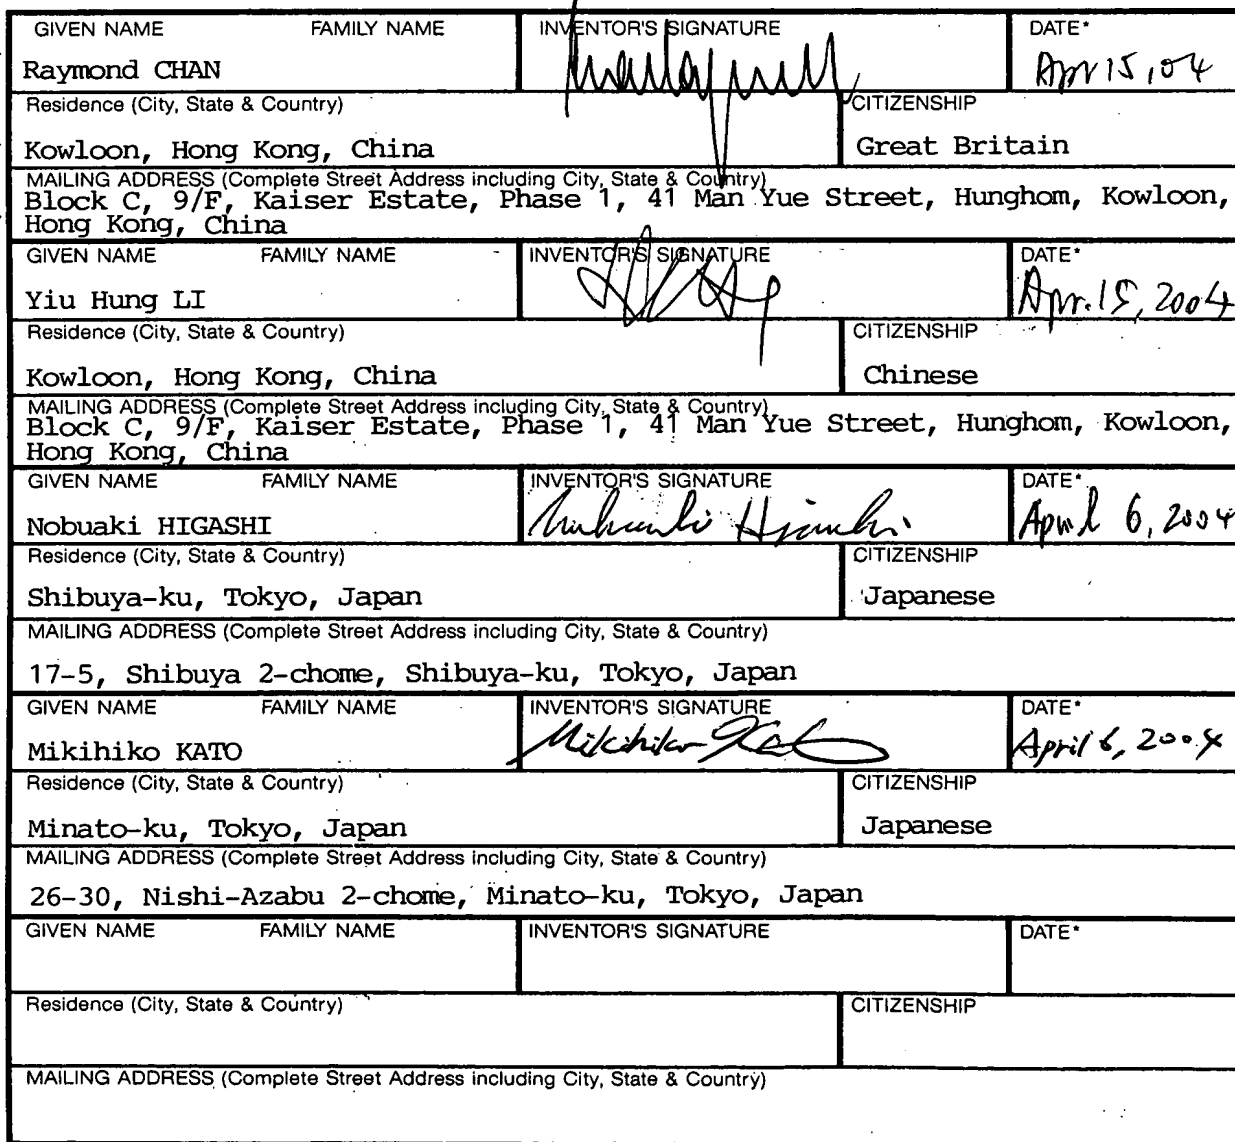 GIVEN NAME FAMILY NAME INVENTOR'S SIGNATURE DATE*
Raymond CHAN Apr 15, 04
Residence (City, State & Country) CITIZENSHIP
Kowloon, Hong Kong, China Great Britain
MAILING ADDRESS (Complete Street Address including City, State & Country)
Block C, 9/F, Kaiser Estate, Phase 1, 41 Man Yue Street, Hunghom, Kowloon,
Hong Kong, China
GIVEN NAME FAMILY NAME INVENTOR'S SIGNATURE DATE*
Yiu Hung LI Apr. 15, 2004
Residence (City, State & Country) CITIZENSHIP
Kowloon, Hong Kong, China Chinese
MAILING ADDRESS (Complete Street Address including City, State & Country)
Block C, 9/F, Kaiser Estate, Phase 1, 41 Man Yue Street, Hunghom, Kowloon,
Hong Kong, China
GIVEN NAME FAMILY NAME INVENTOR'S SIGNATURE DATE*
Nobuaki HIGASHI Nobuaki Higashi April 6, 2004
Residence (City, State & Country) CITIZENSHIP
Shibuya-ku, Tokyo, Japan Japanese
MAILING ADDRESS (Complete Street Address including City, State & Country)
17-5, Shibuya 2-chome, Shibuya-ku, Tokyo, Japan
GIVEN NAME FAMILY NAME INVENTOR'S SIGNATURE DATE*
Mikihiko KATO Mikihiko Kato April 6, 2004
Residence (City, State & Country) CITIZENSHIP
Minato-ku, Tokyo, Japan Japanese
MAILING ADDRESS (Complete Street Address including City, State & Country)
26-30, Nishi-Azabu 2-chome, Minato-ku, Tokyo, Japan
GIVEN NAME FAMILY NAME INVENTOR'S SIGNATURE DATE*
Residence (City, State & Country) CITIZENSHIP
MAILING ADDRESS (Complete Street Address including City, State & Country)